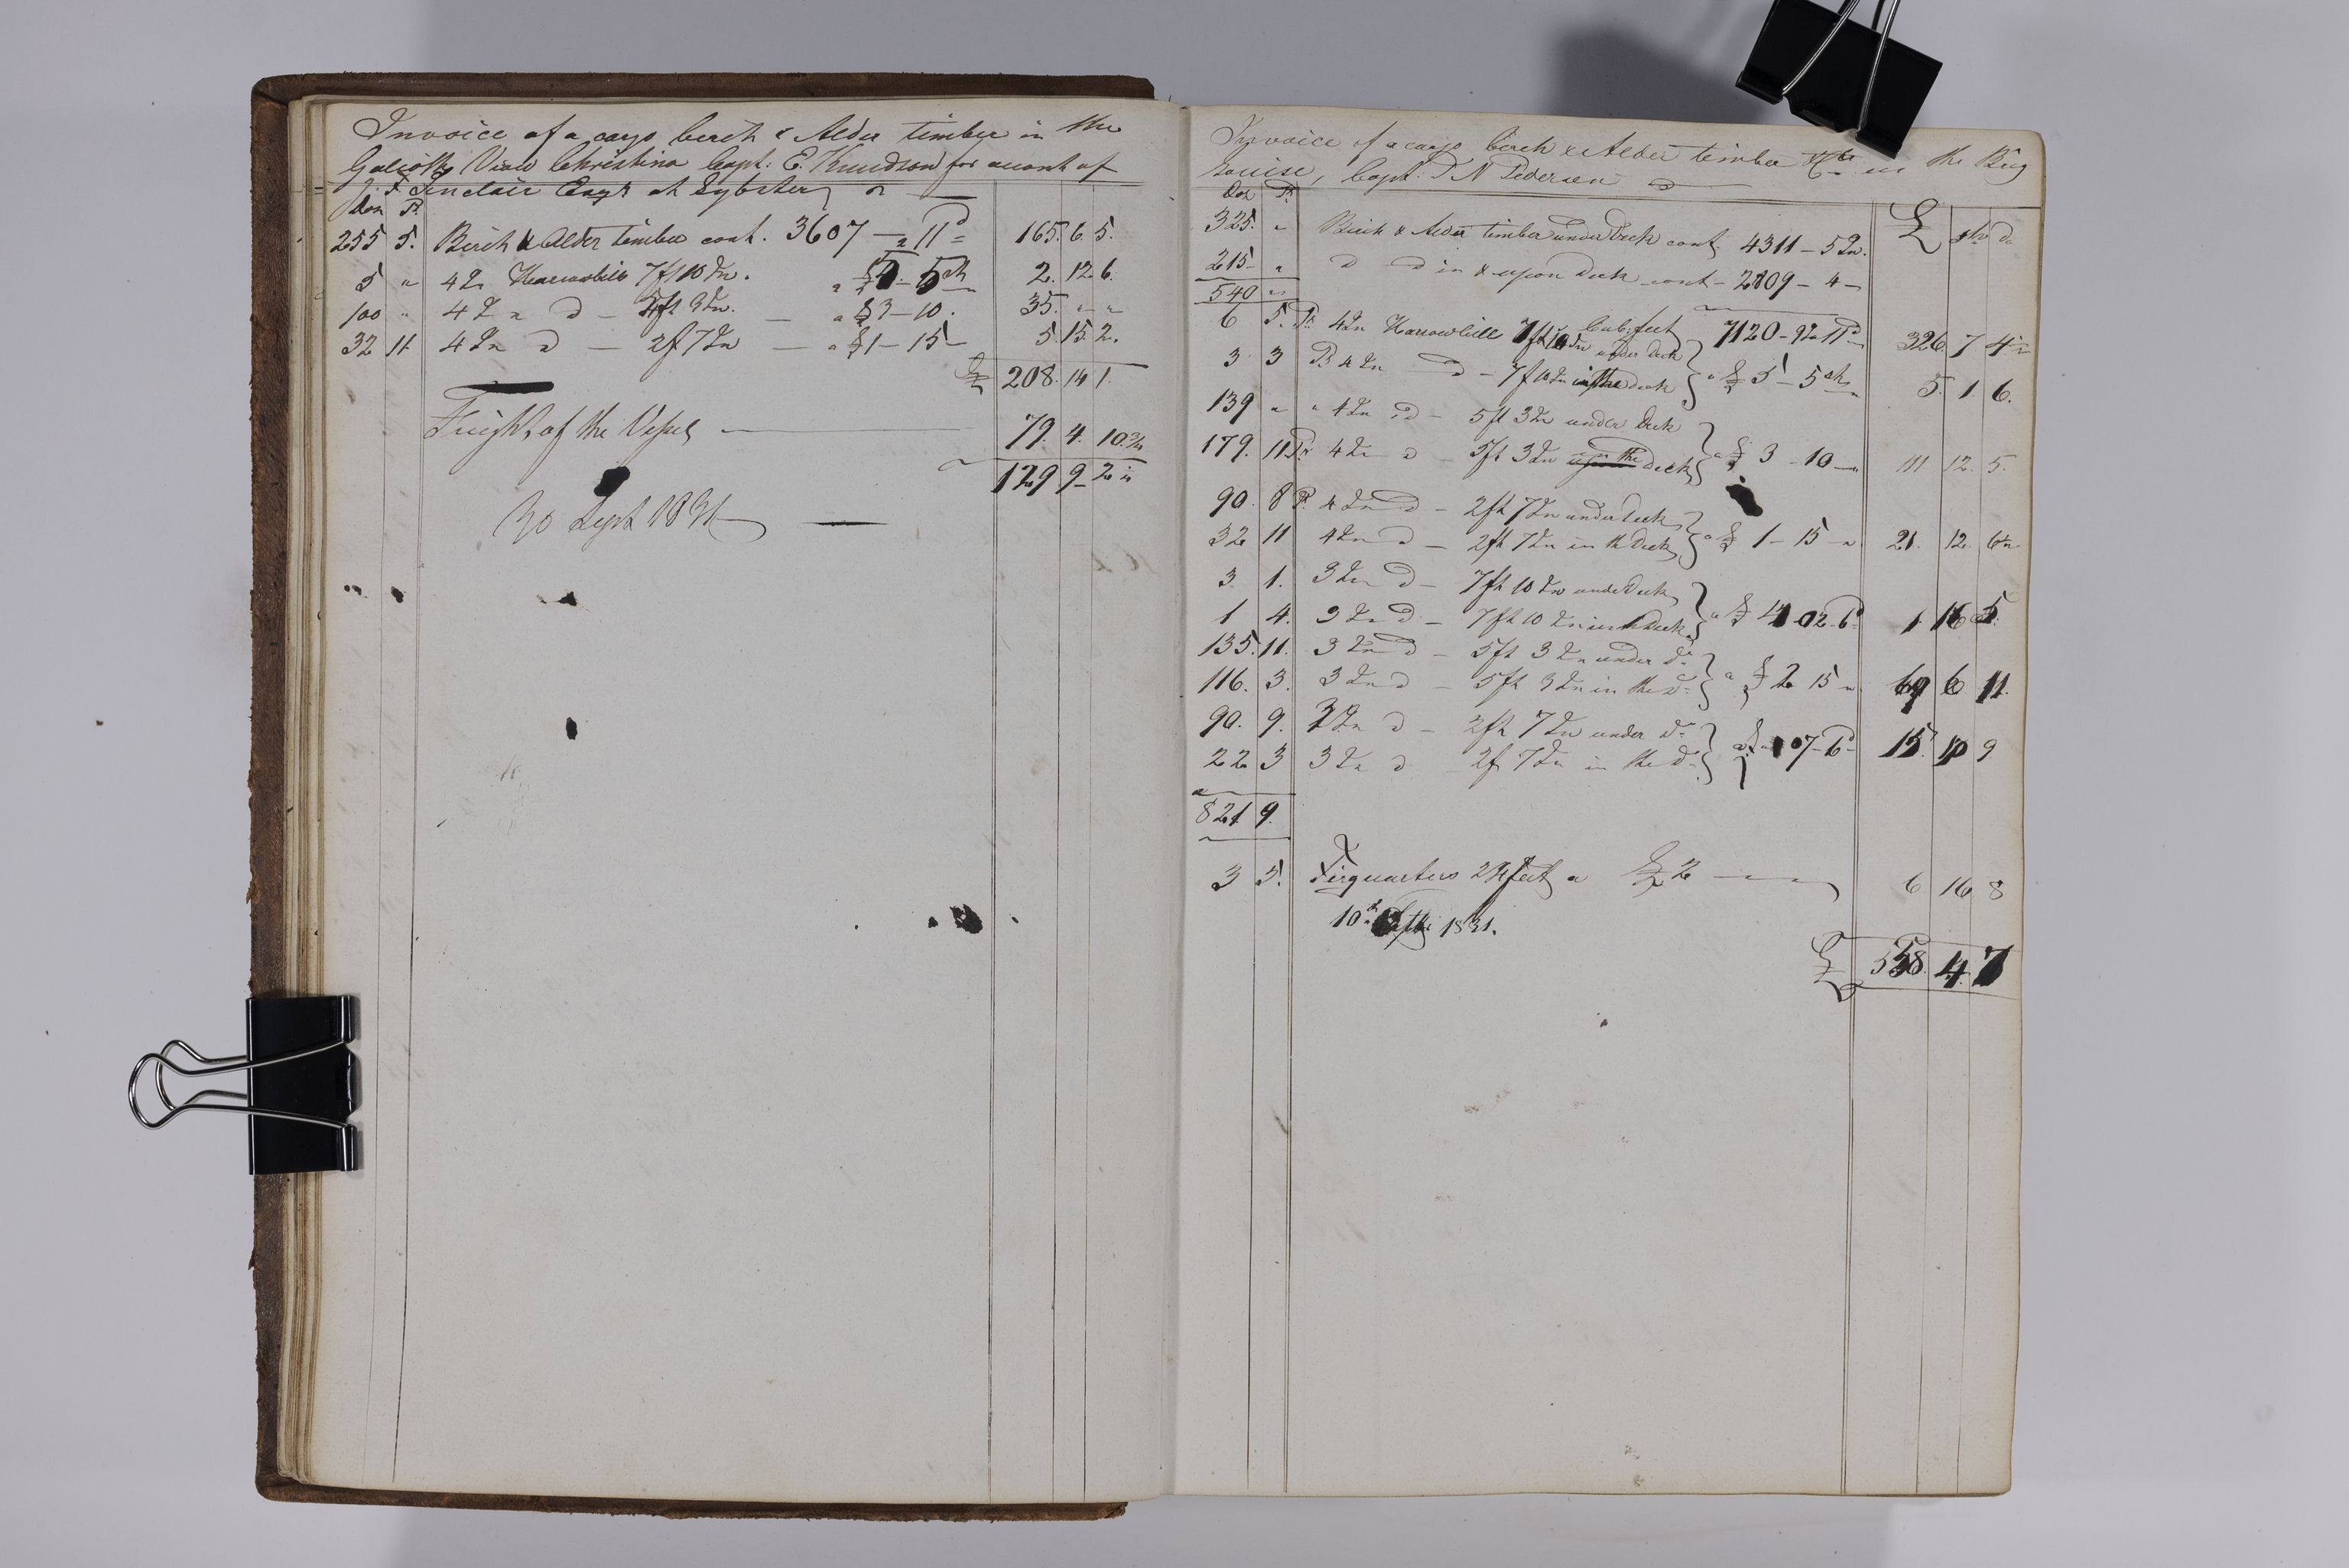 Invoice of a cargo berch & Alder timber in the
Galioth Christina Capt: E. Knudson for account of
J. F. Sinclair Esqr at Lybster
Doz P.
255 5. Birch & Alder timber cont. 3607 — a 11d 165. 6. 5.
5 " 4 In Harrowbills 7ft 10 In. a £ 5 sh 2. 12. 6.
100 " 4 In " D — 5ft 3 In. — a £3 – 10. 35. " "
32 11. 4 In D — 2f 7 In — a £1 – 15 – 5. 15. 2.
£ 208. 14 1.
Freight of the Vessel — 79. 4. 10
129 9 – 2
30 Sept 1831
Invoice of a cargo berch & Alder timber in the Brig
Louise, Capt: P N Pedersen
Doz P. £ sh d
325. " Birch & Alder timber under Deck cont 4311 – 5 In.
215 – " D D in & upon Deck cont – 2809 – 4 –
540 "
6 5. P. 4 In Harrowbill 7ft 10 In under Deck
Cub: feet 7120 – 9 In a 11d 326. 7 4
3 3 P. 4 In D – 7f 10 In in the deck a £ 5 – 5 sh 5. 1. 6.
139 " " 4 In D – 5ft 3 In under Deck
179. 11 P. 4 In D – 5ft 3 In upon the deck a £ 3 – 10 – 111 12. 5.
90. 8 P. 4 In D – 2ft 7 In under Deck
32 11 4 In D – 2ft 7 In in the Deck a £ 1 – 15 – 21. 12. 6
3 1. 3 In D – 7ft 10 In under Deck
1 4. 3 In D – 7ft 10 In in the Deck a £ 4 – 02 – 6d 1 16 5.
135. 11. 3 In D – 5ft 3 In under D
116. 3. 3 In D – 5ft 3 In in the D a £ 2 15 – 69 6 11.
90. 9. 3 In D – 2ft 7 In under D
22 3 3 In D – 2f 7 In in the D 07 – 6d 15. 10 9
821 9.
3 5. Firquarters feet a £ 2 — 6 16 8
10th 1831.
£ 558. 4. 7